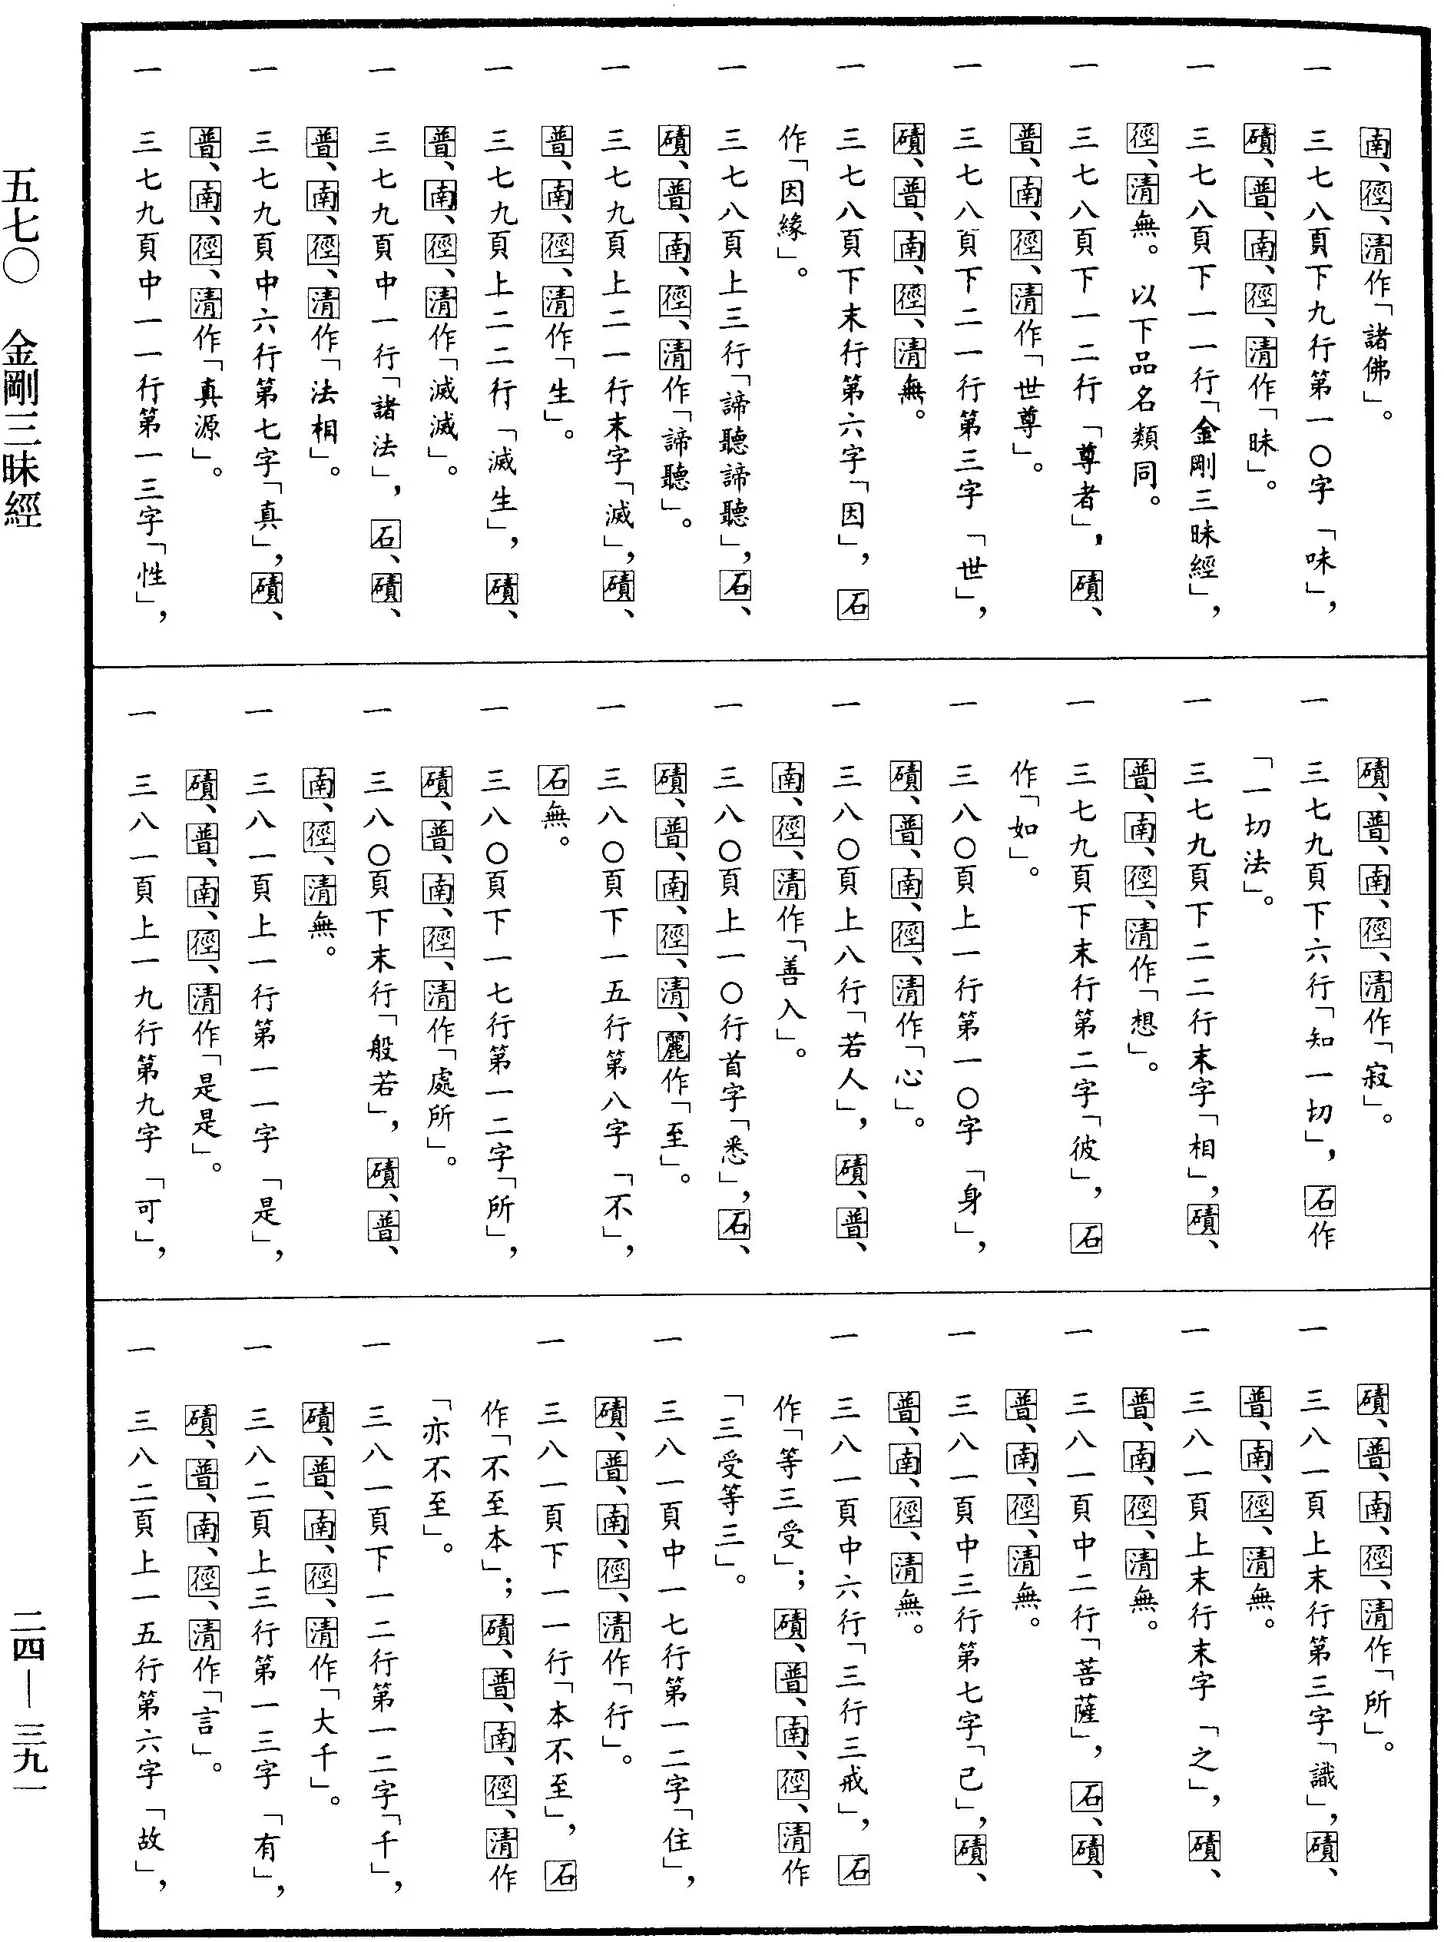 南、徑、清作「諸佛」。
一 三七八頁下九行第一〇字「味」，
磧、普、南、徑、清作「昧」。
一 三七八頁下一一行「金剛三昧經」，
徑、清無。以下品名類同。
一 三七八頁下一二行「尊者」，磧、
普、南、徑、清作「世尊」。
一 三七八頁下二一行第三字「世」，
磧、普、南、徑、清無。
一 三七八頁下末行第六字「因」，石
作「因緣」。
一 三七八頁上三行「諦聽諦聽」，石、
磧、普、南、徑、清作「諦聽」。
一 三七九頁上二一行末字「滅」，磧、
普、南、徑、清作「生」。
一 三七九頁上二二行「滅生」，磧、
普、南、徑、清作「滅滅」。
一 三七九頁中一行「諸法」，石、磧、
普、南、徑、清作「法相」。
一 三七九頁中六行第七字「真」，磧、
普、南、徑、清作「真源」。
一 三七九頁中一一行第一三字「性」，
磧、普、南、徑、清作「寂」。
一 三七九頁下六行「知一切」，石作
「一切法」。
一 三七九頁下二二行末字「相」，磧、
普、南、徑、清作「想」。
一 三七九頁下末行第二字「彼」，石
作「如」。
一 三八〇頁上一行第一〇字「身」，
磧、普、南、徑、清作「心」。
一 三八〇頁上八行「若人」，磧、普、
南、徑、清作「善入」。
一 三八〇頁上一〇行首字「悉」，石、
磧、普、南、徑、清、麗作「至」。
一 三八〇頁下一五行第八字「不」，
石無。
一 三八〇頁下一七行第一二字「所」，
磧、普、南、徑、清作「處所」。
一 三八〇頁下末行「般若」，磧、普、
南、徑、清無。
一 三八一頁上一行第一一字「是」，
磧、普、南、徑、清作「是是」。
一 三八一頁上一九行第九字「可」，
磧、普、南、徑、清作「所」。
一 三八一頁上末行第三字「識」，磧、
普、南、徑、清無。
一 三八一頁上末行末字「之」，磧、
普、南、徑、清無。
一 三八一頁中二行「菩薩」，石、磧、
普、南、徑、清無。
一 三八一頁中三行第七字「已」，磧、
普、南、徑、清無。
一 三八一頁中六行「三行三戒」，石
作「等三受」；磧、普、南、徑、清作
「三受等三」。
一 三八一頁中一七行第一二字「住」，
磧、普、南、徑、清作「行」。
一 三八一頁下一一行「本不至」，石
作「不至本」；磧、普、南、徑、清作
「亦不至」。
一 三八一頁下一二行第一二字「千」，
磧、普、南、徑、清作「大千」。
一 三八二頁上三行第一三字「有」，
磧、普、南、徑、清作「言」。
一 三八二頁上一五行第六字「故」，
五七〇 金剛三昧經
二四—三九一